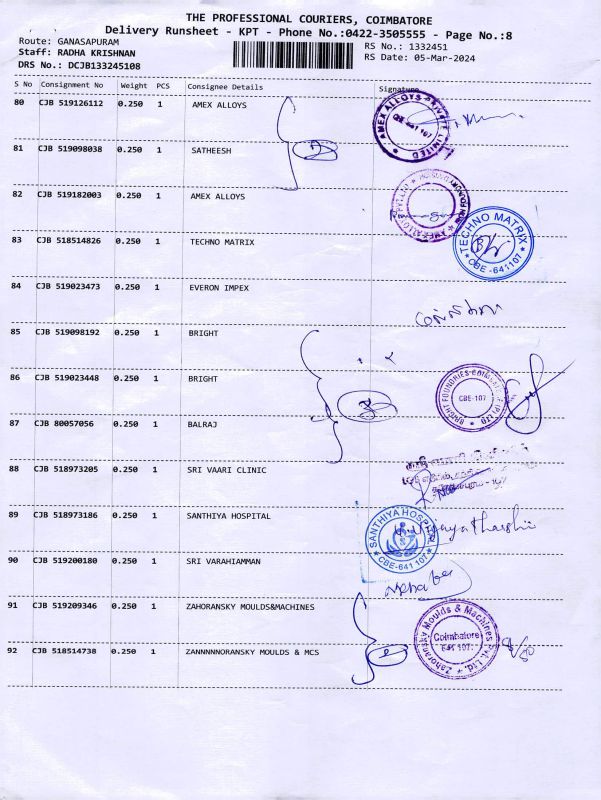 THE PROFESSIONAL COURIERS, COIMBATORE
Delivery Runsheet - KPT - Phone No.:0422-3505555 - Page No.:8
Route: GANASAPURAM
Staff: RADHA KRISHNAN
DRS No.: DCJB133245108
RS No.: 1332451
RS Date: 05-Mar-2024
S No Consignment No Weight PCS Consignee Details Signature
80 CJB 519126112 0.250 1 AMEX ALLOYS
AMEX ALLOYS PRIVATE LIMITED
81 CJB 519098038 0.250 1 SATHEESH
82 CJB 519182003 0.250 1 AMEX ALLOYS
83 CJB 518514826 0.250 1 TECHNO MATRIX
TECHNO MATRIX
CBE-641107
84 CJB 519023473 0.250 1 EVERON IMPEX
85 CJB 519098192 0.250 1 BRIGHT
86 CJB 519023448 0.250 1 BRIGHT
BRIGHT FOUNDRIES COIMBATORE (P) LTD
CBE-107
87 CJB 80057056 0.250 1 BALRAJ
88 CJB 518973205 0.250 1 SRI VAARI CLINIC
89 CJB 518973186 0.250 1 SANTHIYA HOSPITAL
SANTHIYA HOSPITAL
CBE-641 107
90 CJB 519200180 0.250 1 SRI VARAHIAMMAN
91 CJB 519209346 0.250 1 ZAHORANSKY MOULDS&MACHINES
Zahoransky Moulds & Machines Pvt. Ltd.
Coimbatore
641 107.
92 CJB 518514738 0.250 1 ZANNNNNORANSKY MOULDS & MCS